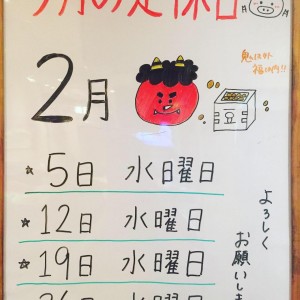 今月の定休日
鬼は外
福は内!!
2月
豆
☆5日 水曜日
☆12日 水曜日
☆19日 水曜日
26日 水曜日
よろしく
お願いしま